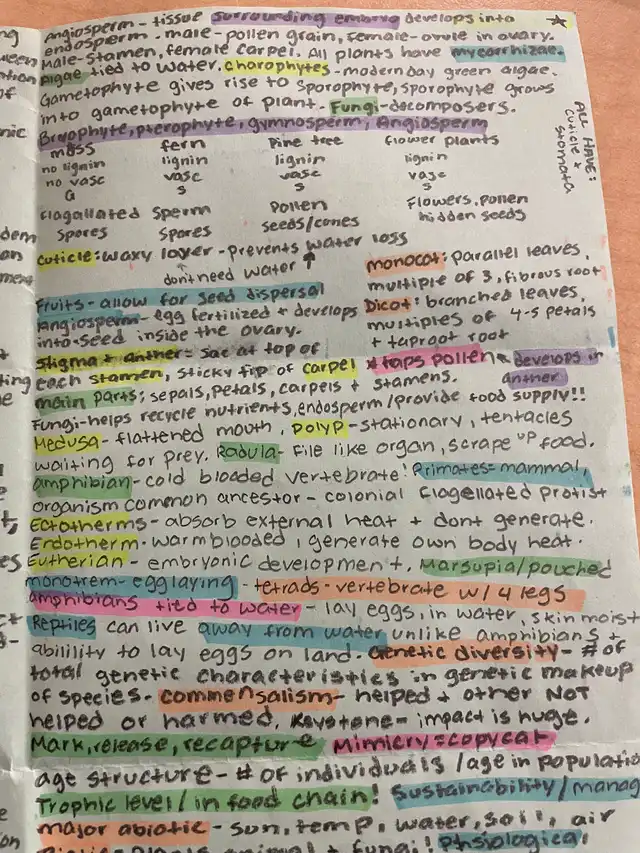 Angiosperm - tissue surrounding embryo develops into
endosperm. male - pollen grain, female - ovule in ovary.
Male - Stamen, female carpel. All plants have mycorrhizae.
Algae tied to water. charophytes - modern day green algae.
Gametophyte gives rise to sporophyte, sporophyte grows
into gametophyte of plant. Fungi - decomposers.
Bryophyte, pterophyte, gymnosperm, Angiosperm
moss fern Pine tree flower plants
no lignin lignin lignin lignin
no vasc vasc vasc vasc
G S S S
Flagallated Sperm Pollen Flowers, pollen
Spores Spores seeds/cones hidden seeds
ALL HAVE:
cuticle +
stomata
cuticle: waxy layer - prevents water loss
don't need water ↑
monocot: parallel leaves,
multiple of 3, fibrous root
Dicot: branched leaves,
multiples of 4-5 petals
+ taproot root
Fruits - allow for seed dispersal
Angiosperm - egg fertilized + develops
into seed inside the ovary.
Stigma + anther = sac at top of
each stamen, sticky tip of carpel * traps pollen develops in
anther
main parts; sepals, petals, carpels + stamens.
Fungi - helps recycle nutrients, endosperm/provide food supply!!
Medusa - flattened mouth, polyp - stationary, tentacles
waiting for prey. Radula - File like organ, scrape up food.
amphibian - cold blooded vertebrate! Primates = mammal,
organism common ancestor - colonial flagellated protist
Ectotherms - absorb external heat + dont generate.
Endotherm - warmblooded, generate own body heat.
Eutherian - embryonic development. Marsupia/pouched
monotrem - egg laying - tetrads - vertebrate w/ 4 legs
amphibians tied to water - lay eggs, in water, skin moist
Reptiles can live away from water unlike amphibians +
abilility to lay eggs on land. Genetic diversity - # of
total genetic characteristics in genetic makeup
of species. commensalism - helped + other NOT
helped or harmed. Keystone = impact is huge.
Mark, release, recapture Mimicry = copycat
age structure - # of individuals /age in populatio
Trophic level/in food chain! Sustainability/manag
major abiotic - sun, temp, water, soil, air
animal + fungi!